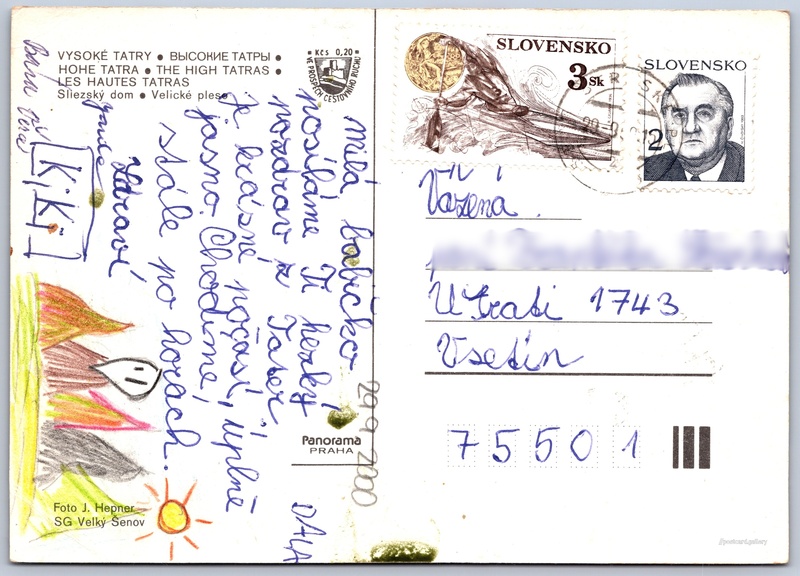 VYSOKÉ TATRY • ВЫСОКИЕ ТАТРЫ •
HOHE TATRA • THE HIGH TATRAS •
LES HAUTES TATRAS
Sliezský dom • Velické pleso
• Kčs 0,20 •
VE PROSPĚCH CESTOVNÍHO RUCHU
SLOVENSKO
3 Sk
SLOVENSKO
2
Milá babičko
posíláme Ti hezký
pozdrav z Tater.
Je krásné počasí, úplně
jasno. Chodíme,
stále po horách.
Zdraví
[KiKi]
29 9 2000
Panorama
PRAHA
Foto J. Hepner
SG Velký Šenov
Vážená
U Trati 1743
Vsetín
75501
postcard.gallery